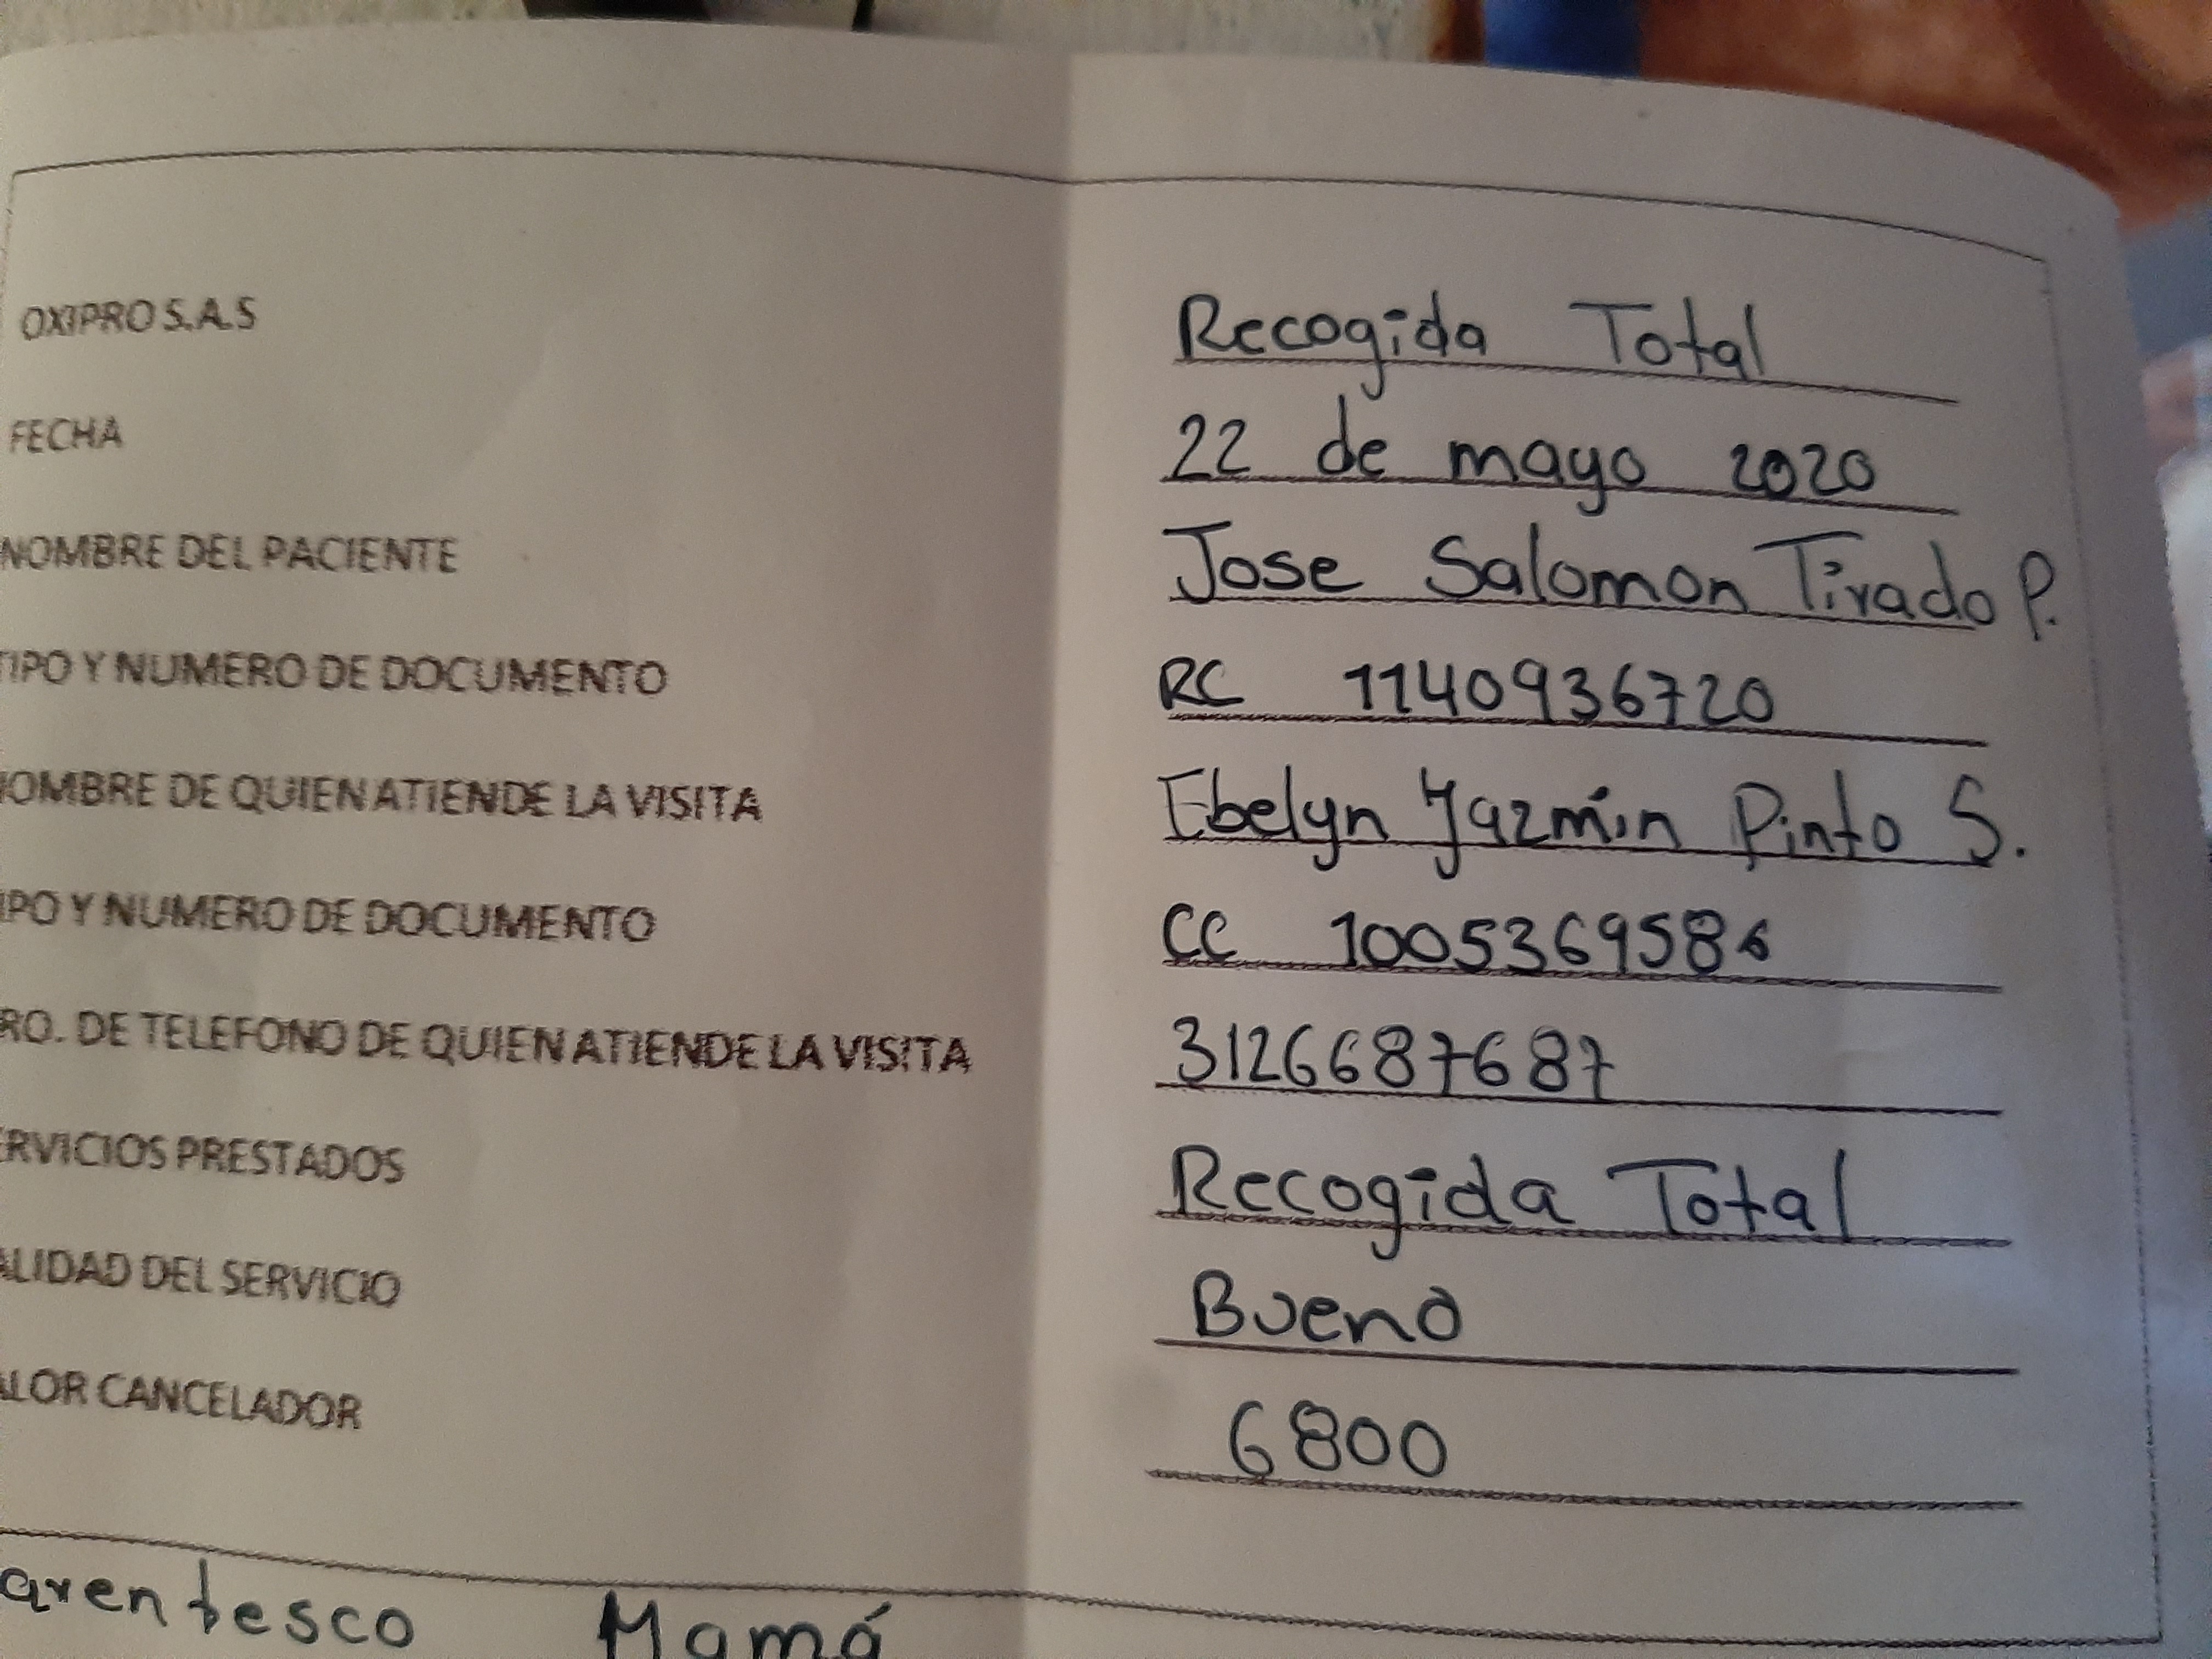 OXIPRO S.A.S Recogida Total
FECHA 22 de mayo 2020
NOMBRE DEL PACIENTE Jose Salomon Tirado P.
TIPO Y NUMERO DE DOCUMENTO RC 1140936720
NOMBRE DE QUIEN ATIENDE LA VISITA Ebelyn Yazmin Pinto S.
IPO Y NUMERO DE DOCUMENTO CC 1005369586
RO. DE TELEFONO DE QUIEN ATIENDE LA VISITA 3126687687
ERVICIOS PRESTADOS Recogida Total
ALIDAD DEL SERVICIO Bueno
ALOR CANCELADOR 6800
arentesco Mamá